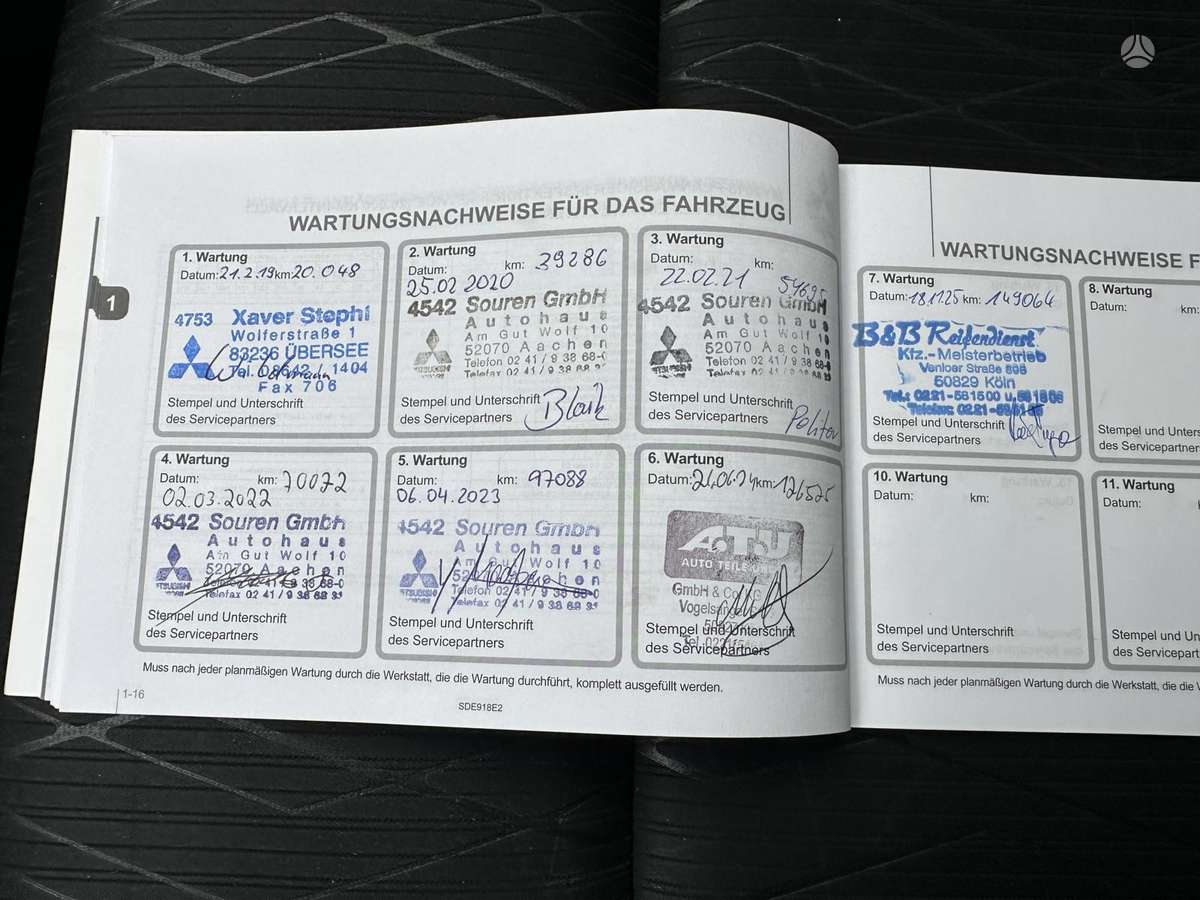 WARTUNGSNACHWEISE FÜR DAS FAHRZEUG
1. Wartung
Datum: 21.2.19 km: 20.048
4753 Xaver Stephl
Wolferstraße 1
83236 ÜBERSEE
Tel. 08642 1404
Fax 706
Stempel und Unterschrift
des Servicepartners
2. Wartung
Datum: km: 39286
25.02 2020
4542 Souren GmbH
Autohaus
Am Gut Wolf 10
52070 Aachen
Telefon 02 41 / 9 38 68-0
Telefax 02 41 / 9 38 68
MITSUBISHI
Stempel und Unterschrift
des Servicepartners
3. Wartung
Datum: km:
22.02.21
4542 Souren GmbH
Autohaus
Am Gut Wolf 10
52070 Aachen
Telefon 02 41 / 9 38 68-0
Telefax 02 41 / 9 38 68
Stempel und Unterschrift
des Servicepartners
4. Wartung
Datum: km: 70072
02.03.2022
4542 Souren GmbH
Autohaus
Am Gut Wolf 10
52070 Aachen
Telefon 02 41 / 9 38 68-0
Telefax 02 41 / 9 38 68
MITSUBISHI
Stempel und Unterschrift
des Servicepartners
5. Wartung
Datum: km: 97088
06.04.2023
4542 Souren GmbH
Autohaus
Am Gut Wolf 10
Aachen
Telefon 02 41 / 9 38 68-0
Telefax 02 41 / 9 38 68
Stempel und Unterschrift
des Servicepartners
6. Wartung
Datum: km: 126525
A.T.U
AUTO TEILE
GmbH & Co. KG
Stempel und Unterschrift
des Servicepartners
Muss nach jeder planmäßigen Wartung durch die Werkstatt, die die Wartung durchführt, komplett ausgefüllt werden.
1
1-16
SDE918E2
WARTUNGSNACHWEISE F
7. Wartung
Datum: 18.11.25 km: 149064
B&B Reifendienst
Kfz.-Meisterbetrieb
Venloer Straße
50829 Köln
Stempel und Unterschrift
des Servicepartners
8. Wartung
Datum: km:
Stempel und Unters
des Servicepartners
10. Wartung
Datum: km:
Stempel und Unterschrift
des Servicepartners
11. Wartung
Datum:
Stempel und Unt
des Servicepartn
Muss nach jeder planmäßigen Wartung durch die Werkstatt, die die W